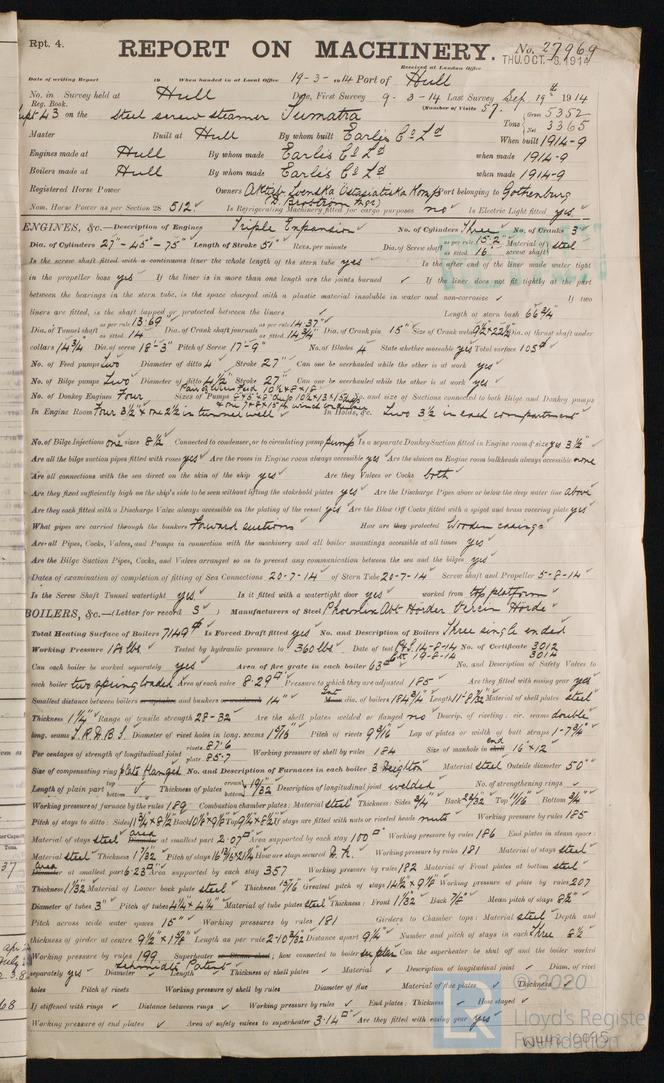 Rpt. 4.
REPORT ON MACHINERY. No. 27969
Received at London Office THU. OCT. -8. 1914
Date of writing Report 19 When handed in at Local Office 19-3-1914 Port of Hull
No. in Survey held at Hull Date, First Survey 9-3-14 Last Survey Sep. 19th 1914
Reg. Book. (Number of Visits 57.
43 on the steel screw steamer Sumatra Tons { Gross 5352 Net 3365
Master Built at Hull By whom built Earle's Co Ld When built 1914-9
Engines made at Hull By whom made Earle's Co Ld when made 1914-9
Boilers made at Hull By whom made Earle's Co Ld when made 1914-9
Registered Horse Power Owners Aktieb. Svenska Ostasiatiska Komp. Port belonging to Gothenburg
Nom. Horse Power as per Section 28 512. Is Refrigerating Machinery fitted for cargo purposes no Is Electric Light fitted yes.
ENGINES, &c.—Description of Engines Triple Expansion No. of Cylinders Three No. of Cranks 3
Dia. of Cylinders 27"-45"-75" Length of Stroke 51" Revs. per minute Dia. of Screw shaft as per rule 15.2" as fitted 16" Material of screw shaft steel
Is the screw shaft fitted with a continuous liner the whole length of the stern tube yes Is the after end of the liner made water tight
in the propeller boss yes If the liner is in more than one length are the joints burned ✓ If the liner does not fit tightly at the part
between the bearings in the stern tube, is the space charged with a plastic material insoluble in water and non-corrosive ✓ If two
liners are fitted, is the shaft lapped or protected between the liners Length of stern bush 66¾"
Dia. of Tunnel shaft as per rule 13.69 as fitted 14" Dia. of Crank shaft journals as per rule 14.37" as fitted 14¾" Dia. of Crank pin 15" Size of Crank webs 9½"x22½" Dia. of thrust shaft under
collars 14¾" Dia. of screw 18'-3" Pitch of Screw 17'-9" No. of Blades 4 State whether moveable yes Total surface 105
No. of Feed pumps two Diameter of ditto 4" Stroke 27" Can one be overhauled while the other is at work yes
No. of Bilge pumps Two Diameter of ditto 4½" Stroke 27" Can one be overhauled while the other is at work yes
No. of Donkey Engines Four Sizes of Pumps No. and size of Suctions connected to both Bilge and Donkey pumps
In Engine Room Four 3½" & one 2½" in tunnel well In Holds, &c. Two 3½ in each compartment
No. of Bilge Injections one sizes 8½" Connected to condenser, or to circulating pump pump Is a separate Donkey Suction fitted in Engine room & size yes 3½"
Are all the bilge suction pipes fitted with roses yes Are the roses in Engine room always accessible yes Are the sluices on Engine room bulkheads always accessible none
Are all connections with the sea direct on the skin of the ship yes Are they Valves or Cocks both
Are they fixed sufficiently high on the ship's side to be seen without lifting the stokehold plates yes Are the Discharge Pipes above or below the deep water line above
Are they each fitted with a Discharge Valve always accessible on the plating of the vessel yes Are the Blow Off Cocks fitted with a spigot and brass covering plate yes
What pipes are carried through the bunkers Forward suctions How are they protected Wooden casings
Are all Pipes, Cocks, Valves, and Pumps in connection with the machinery and all boiler mountings accessible at all times yes
Are the Bilge Suction Pipes, Cocks, and Valves arranged so as to prevent any communication between the sea and the bilges yes
Dates of examination of completion of fitting of Sea Connections 20-7-14 of Stern Tube 20-7-14 Screw shaft and Propeller 5-8-14
Is the Screw Shaft Tunnel watertight yes. Is it fitted with a watertight door yes worked from top platform
BOILERS, &c.—(Letter for record S) Manufacturers of Steel Phoenix Abt Horder Verein Horde
Total Heating Surface of Boilers 7149 Is Forced Draft fitted yes No. and Description of Boilers Three single ended
Working Pressure 180 lbs Tested by hydraulic pressure to 360 lbs Date of test 14-8-14 19-8-14 No. of Certificate 3012 3014
Can each boiler be worked separately yes Area of fire grate in each boiler 63 No. and Description of Safety Valves to
each boiler two spring loaded Area of each valve 8.29 Pressure to which they are adjusted 185 Are they fitted with easing gear yes
Smallest distance between boilers or uptakes and bunkers or woodwork 14" dia. of boilers 184¾" Length 11-8 Material of shell plates steel
Thickness 1¼" Range of tensile strength 28-32 Are the shell plates welded or flanged no Descrip. of riveting: cir. seams double
long. seams T.R.D.B.S. Diameter of rivet holes in long. seams 1 Pitch of rivets 9 Lap of plates or width of butt straps 1-7¾"
Per centages of strength of longitudinal joint rivets 87.6 plate 85.7 Working pressure of shell by rules 184 Size of manhole in end 16"x12"
Size of compensating ring plate flanged No. and Description of Furnaces in each boiler 3 Deighton Material steel Outside diameter 50"
Length of plain part top bottom Thickness of plates crown bottom 19/32" Description of longitudinal joint welded No. of strengthening rings ✓
Working pressure of furnace by the rules 189 Combustion chamber plates: Material steel Thickness: Sides ¾" Back Top 11/16" Bottom ¾"
Pitch of stays to ditto: Sides Back Top If stays are fitted with nuts or riveted heads nuts Working pressure by rules 185
Material of stays steel area at smallest part 2.07 Area supported by each stay 100 Working pressure by rules 186 End plates in steam space:
Material steel Thickness 1 Pitch of stays How are stays secured Working pressure by rules 181 Material of stays steel
Area at smallest part 6.23 Area supported by each stay 357 Working pressure by rules 182 Material of Front plates at bottom steel
Thickness Material of Lower back plate steel Thickness Greatest pitch of stays Working pressure of plate by rules 207
Diameter of tubes 3" Pitch of tubes 4¼"x4¼" Material of tube plates steel Thickness: Front Back Mean pitch of stays 8½"
Pitch across wide water spaces 15" Working pressures by rules 181 Girders to Chamber tops: Material steel Depth and
thickness of girder at centre Length as per rule Distance apart 9¼ Number and pitch of stays in each three 8½
Working pressure by rules 199 Superheater or Steam chest; how connected to boiler Can the superheater be shut off and the boiler worked
Schmidt's Patent
separately yes Diameter Length Thickness of shell plates ✓ Material ✓ Description of longitudinal joint ✓ Diam. of rivet
holes Pitch of rivets Working pressure of shell by rules Diameter of flue Material of flue plates Thickness
If stiffened with rings ✓ Distance between rings ✓ Working pressure by rules ✓ End plates: Thickness ✓ How stayed ✓
Working pressure of end plates ✓ Area of safety valves to superheater 3.14 Are they fitted with easing gear yes
© 2020
Lloyd's Register
Foundation
W443-0095